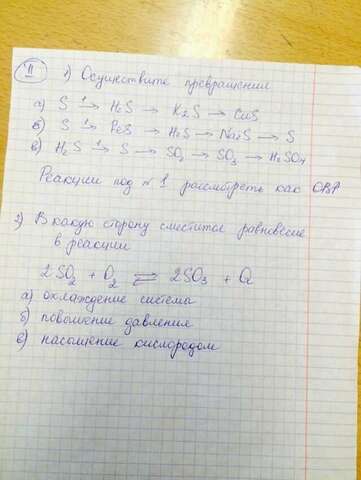 II
1) Осуществите превращения
а) S ¹→ H₂S → K₂S → CuS
в) S ¹→ FeS → H₂S → Na₂S → S
в) H₂S ¹→ S → SO₂ → SO₃ → H₂SO₄
Реакции под №1 рассмотреть как ОВР
2) В какую сторону сместится равновесие
в реакции
2SO₂ + O₂ ⇌ 2SO₃ + Q
а) охлаждение системы
б) повышение давления
в) насыщение кислородом